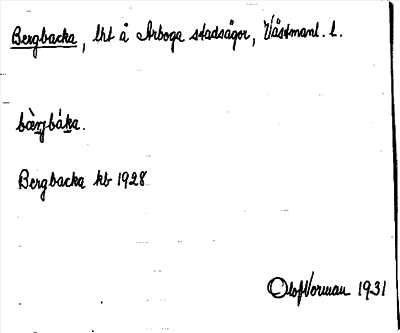 Bergbacka, lht å Arboga stadsägor, Västmanl. l.
bàrjbáka.
Bergbacka kb 1928
Olof Vorman 1931